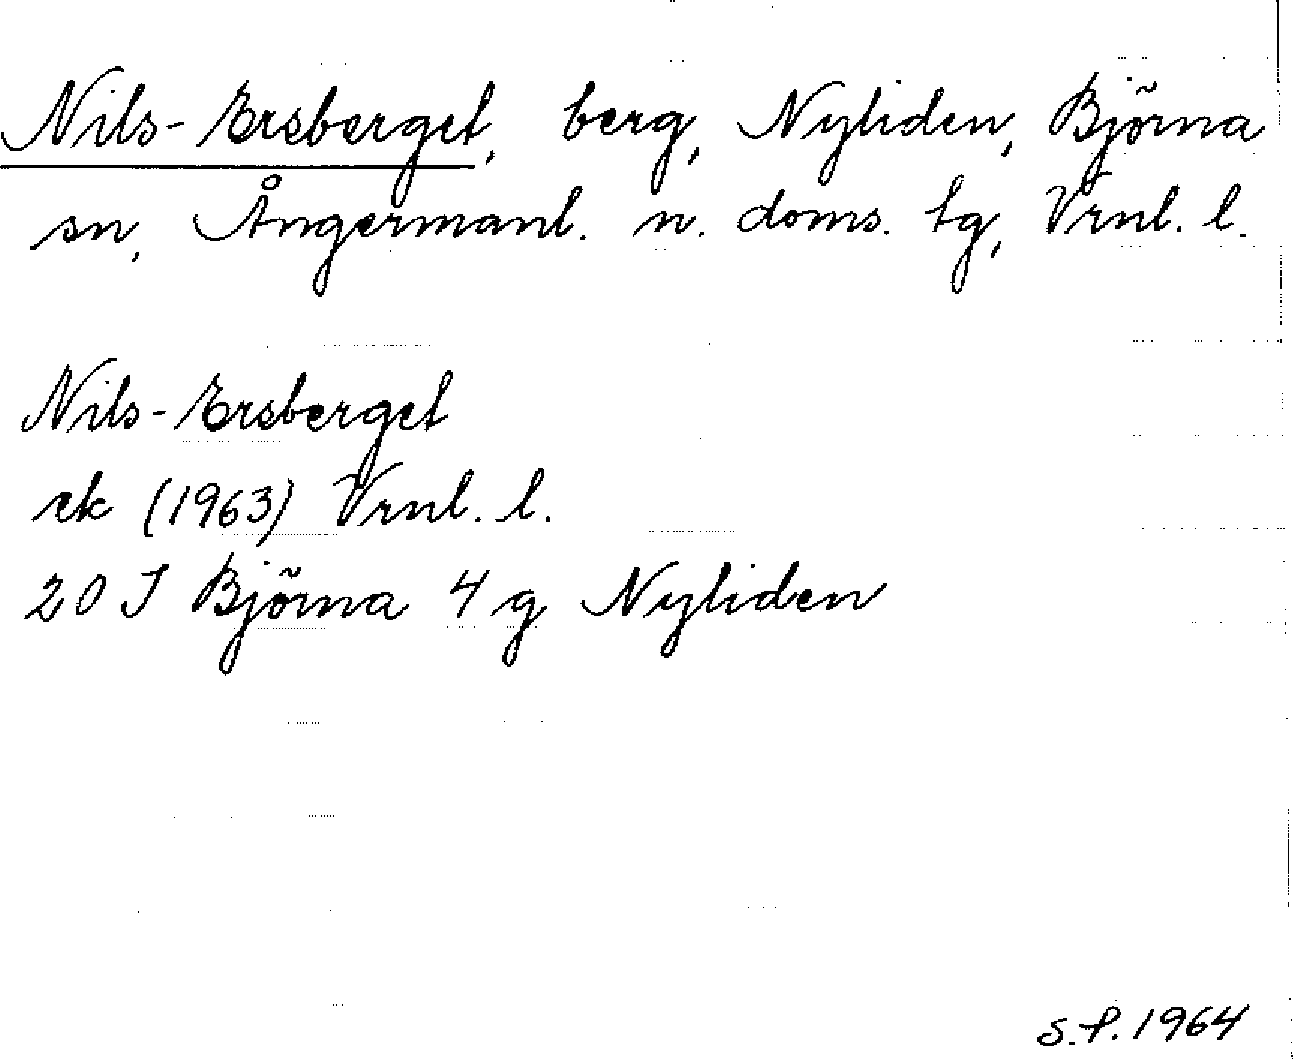 Nils-Ersberget, berg, Nyliden, Björna
sn, Ångermanl. n. doms. tg, Vrnl. l.
Nils-Ersberget
ek (1963) Vrnl. l.
20 J Björna 4 g Nyliden
S.P. 1964